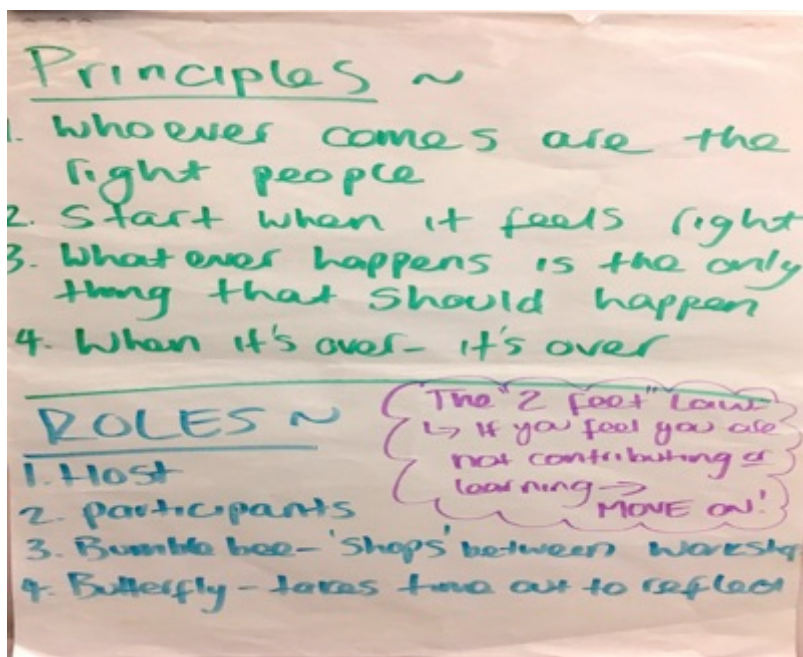 Principles ~
1. Whoever comes are the
right people
2. Start when it feels right
3. Whatever happens is the only
thing that should happen
4. When it's over - it's over
ROLES ~
1. Host
2. participants
3. Bumble bee - 'shops' between
4. Butterfly - takes time out to reflect
The "2 feet" Law
↳ If you feel you are
not contributing or
learning →
MOVE ON!